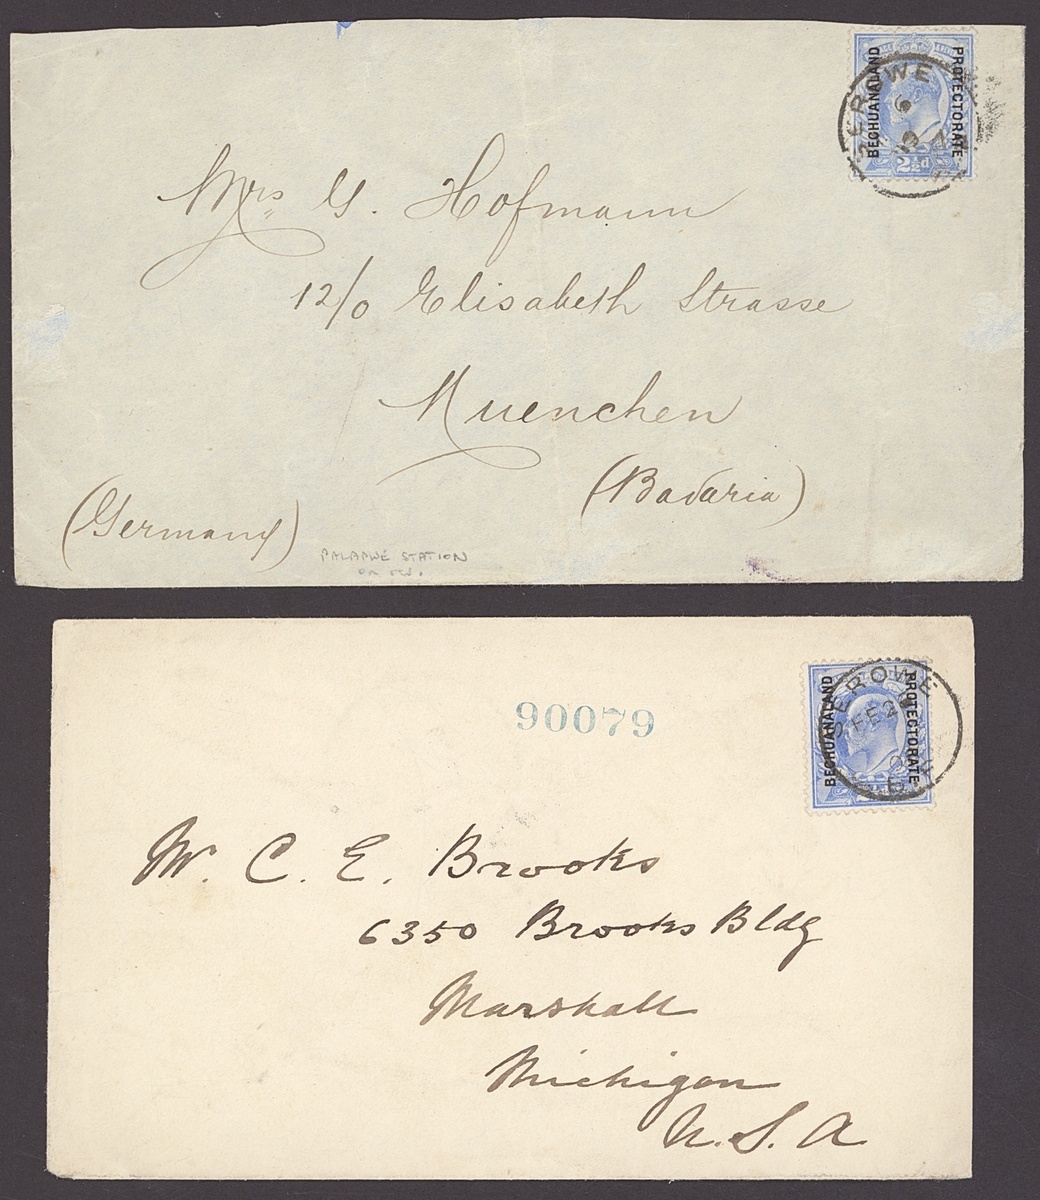 BECHUANALAND
PROTECTORATE
SEROWE
2½d
Mrs G. Hofmann
12/0 Elisabeth Strasse
Muenchen
(Bavaria)
(Germany)
PALAPWE STATION
BECHUANALAND
PROTECTORATE
SEROWE
FE 2
90079
Mr. C. E. Brooks
6350 Brooks Bldg
Marshall
Michigan
U.S.A